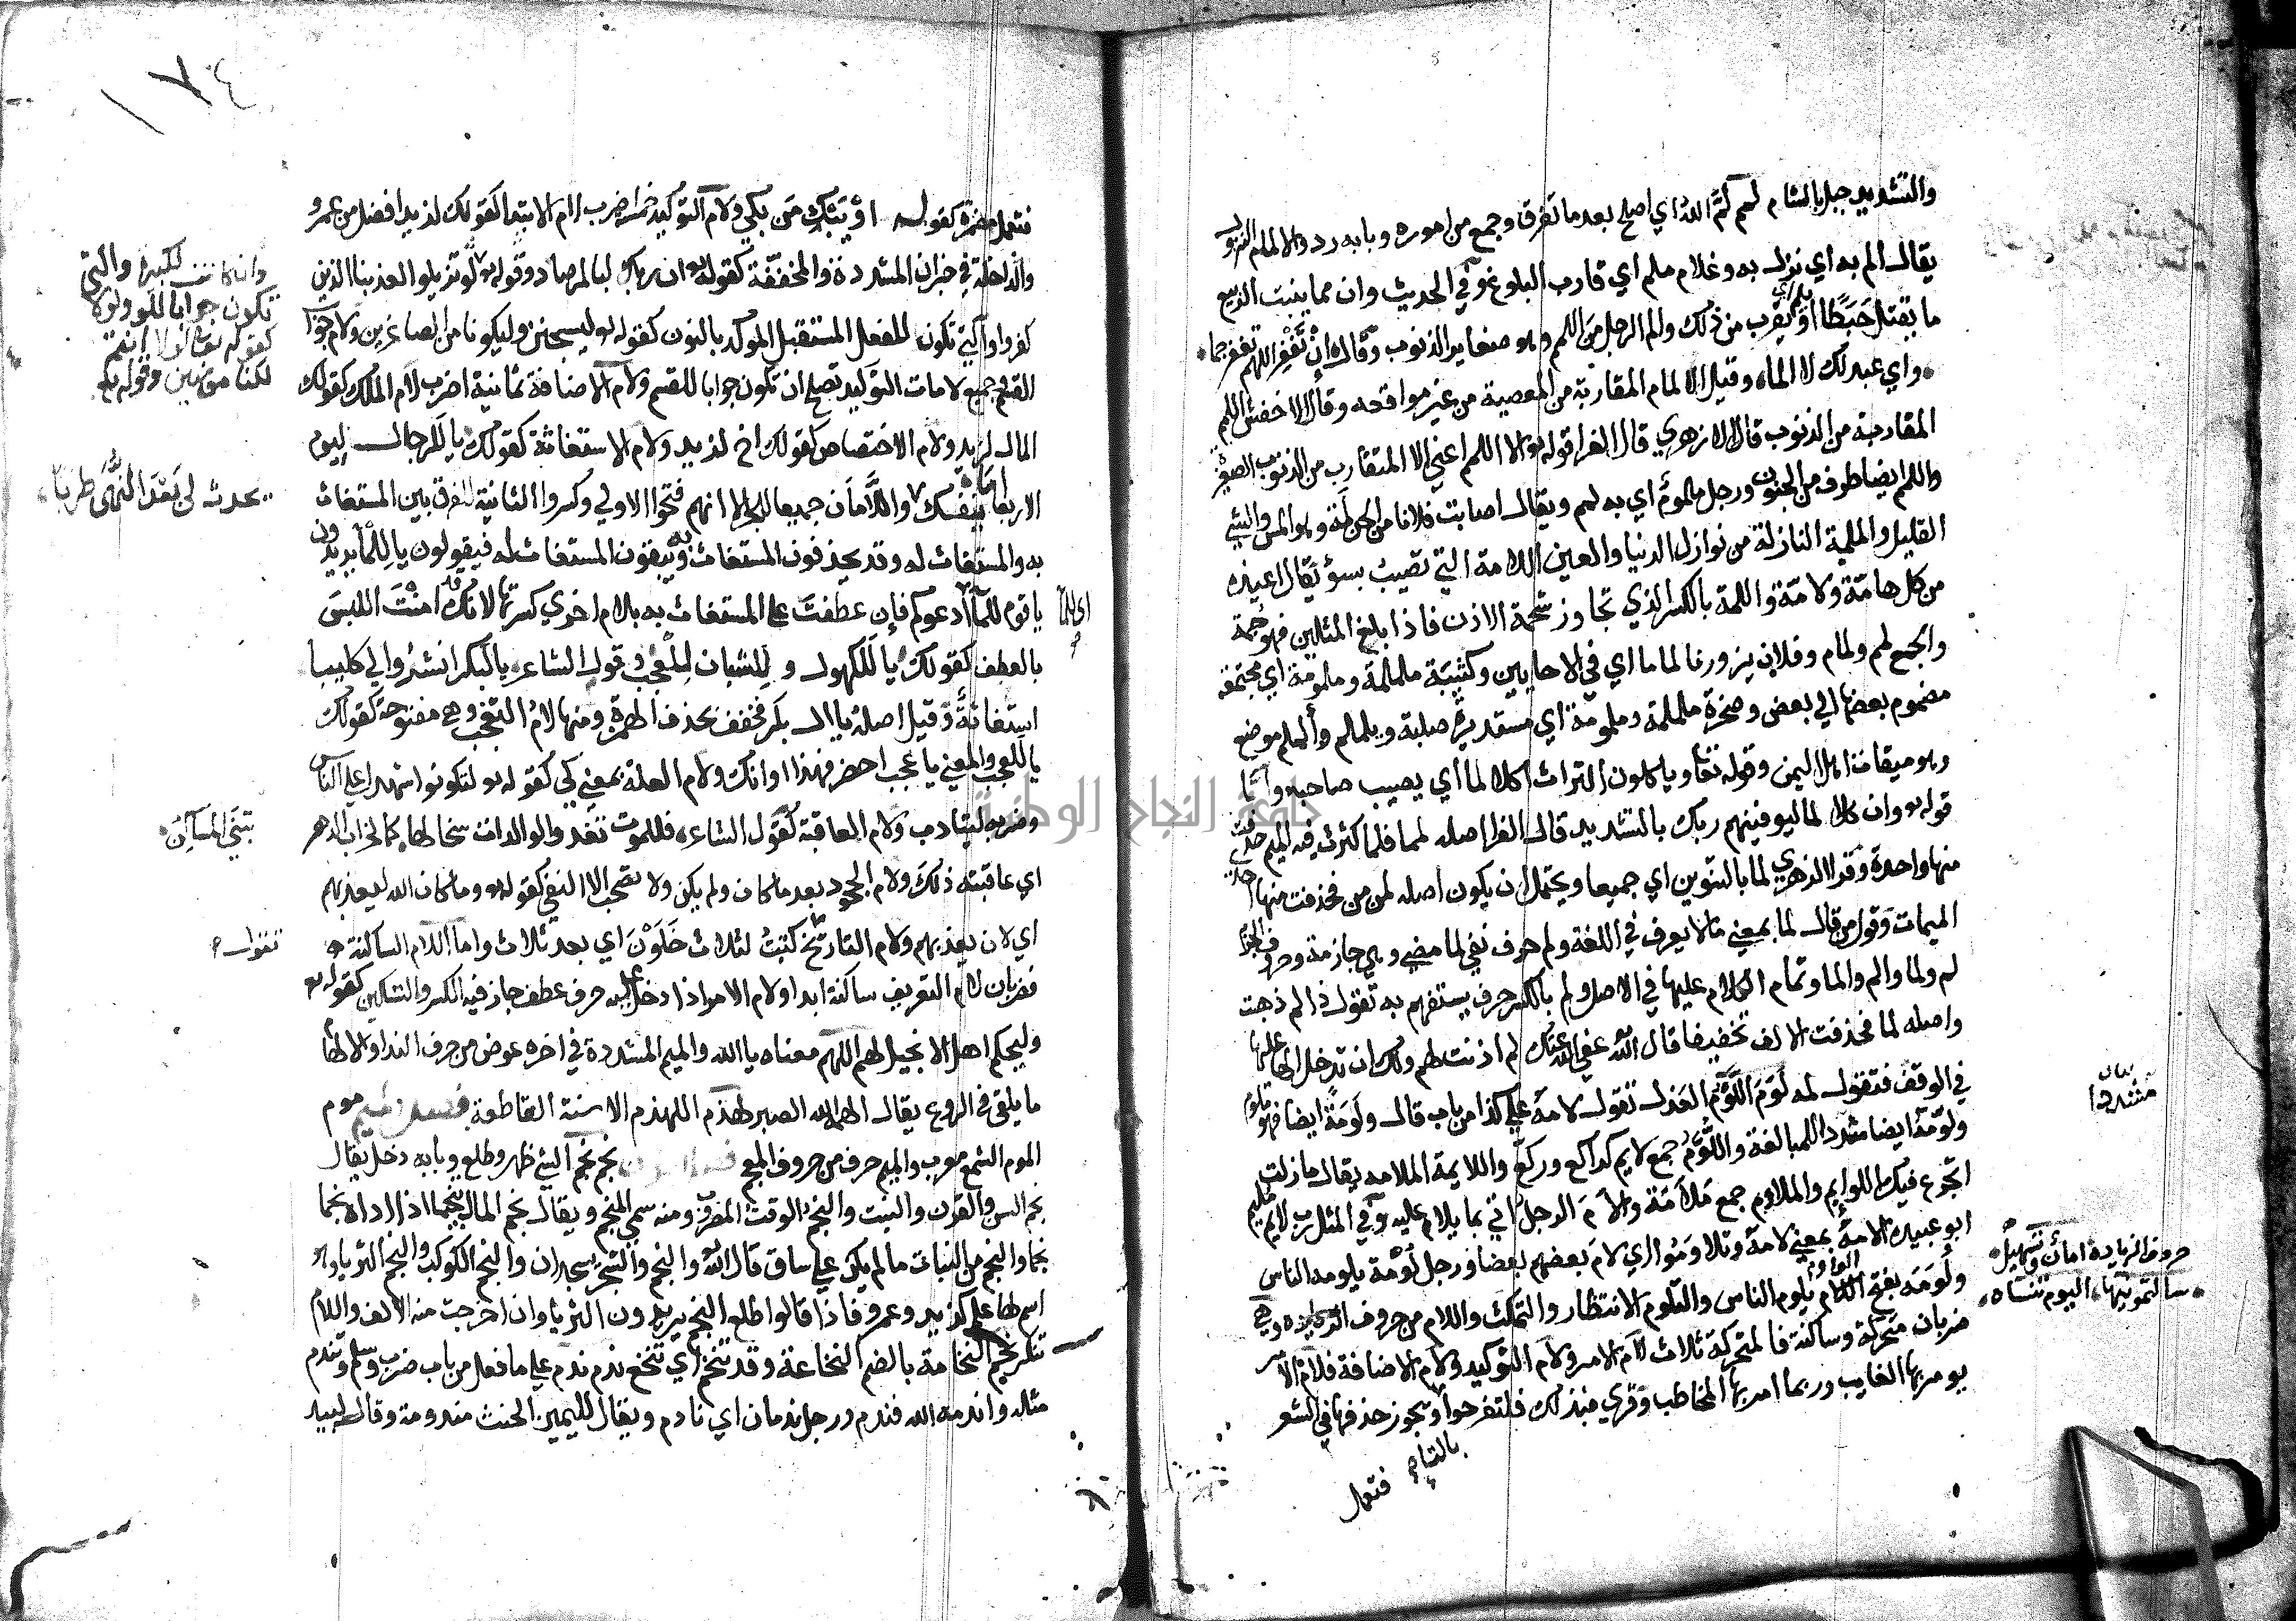 والتشديد جبل بالشام لمم لمّ الله اي اصلح بعد ما تفرق وجمع من اموره وبابه رد والالمام النزول
يقال الم به اي نزل به وغلام ملم اي قارب البلوغ وفي الحديث وان مما ينبت الربيع
ما يقتل حَبَطًا او يلم اي يقرب من ذلك والم الرجل من اللمم وهو صغاير الذنوب وقال ان تغفر اللهم تغفر جما
واي عبد لك لا الما وقيل الالمام المقاربة من المعصية من غير مواقعه وقال الاخفش اللمم
المقاربة من الذنوب قال الازهري قال الفرا قوله تع الا اللمم اعني الا المتقارب من الذنوب الصغيرة
واللمم ايضا طرف من الجنون ورجل ملموم اي به لمم ويقال اصابت فلانا من الجن لمة وهو المس والشي
القليل والملمة النازلة من نوازل الدنيا والعين اللامة التي تصيب بسوء يقال اعيذه
من كل هامّة ولامّة واللمة بالكسر الذي تجاوز شحمة الاذن فاذا بلغ المنكبين فهو جمة
والجمع لمم ولمام وفلان يزورنا لماما اي في الاحايين وكتيبة ململمة وملمومة اي مجتمعة
مضموم بعضها الي بعض وصخرة ململمة وملمومة اي مستديرة صلبة ويلملم والملم موضع
وهو ميقات اهل اليمن وقوله تعا وياكلون التراث اكلا لما اي يصيب صاحبه واما
قوله تع وان كلا لما ليوفينهم ربك بالتشديد قال الفرا اصله لمما فلما كثرت فيه الميم حذفت
منها واحدة وقرا الزهري لما بالتنوين اي جميعا ويحتمل ان يكون اصله لمن من فحذفت منها احدي
الميمات وقول من قال لما بمعني الا لا يعرف في اللغة ولم حرف نفي لما مضي وهي جازمة وحروف الجزم
لم ولما والم والما وتمام الكلام عليها في الاصل ولم بالكسر حرف يستفهم به تقول لم ذهبت
واصله لما فحذفت الالف تخفيفا قال الله تع عفي الله عنك لم اذنت لهم ولك ان تدخل الها عليها
في الوقف فتقول لمه لَوَمَ اللَّوْمُ العذل تقول لامه علي كذا من باب قال ولَومَةً ايضا فهو ملوم
ولوّمه ايضا مشدد للمبالغة واللُّوَّمُ جمع لايم كراكع وركع واللايمة الملامه يقال ما زلت
اتجرع فيك اللوايم والملاوم جمع مَلامَة والامَ الرجل اتي بما يلام عليه وفي المثل رب لايم مليم
ابو عبيدة الامه بمعني لامه وتلاوموا اي لام بعضهم بعضا ورجل لُوْمة يلومه الناس
ولُوَمَه بفتح الواو يلوم الناس والتلوم الانتظار والتمكث واللام من حروف الزيادة وهي
ضربان متحركة وساكنة فالمتحركة ثلاث لام الامر ولام التوكيد ولام الاضافة فلام الامر
يومر بها الغايب وربما امر بها المخاطب وقري فبذلك فلتفرحوا ويجوز حذفها في الشعر
بالتاء
فتعمل
مشددا
حروف الزيادة امان وتسهيل
سالتمونيها اليوم تنساه
١٧٤
فتعمل مضمرة كقوله او يَبْكِ مَن بكي ولام التوكيد خمسة اضرب لام الابتدا كقولك لزيد افضل من عمرو
والداخلة في خبر ان المشددة والمخففة كقوله تع ان ربك لبالمرصاد وقوله تع لو تزيلوا لعذبنا الذين
كفروا والتي تكون للفعل المستقبل الموكد بالنون كقوله تع ليسجنن وليكونا من الصاغرين ولام جواب
القسم وجميع لامات التوكيد تصلح ان تكون جوابا للقسم ولام الاضافة ثمانية اضرب لام الملك كقولك
المال لزيد ولام الاختصاص كقولك اخ لزيد ولام الاستغاثة كقولك يا لَلرجال ليوم
الاربعا ينفك واللامان جميعا للجر الا انهم فتحوا الاولي وكسروا الثانية للفرق بين المستغاث
به والمستغاث له وقد يحذفون المستغاث به ويبقون المستغاث له فيقولون يا لِلما يريدون
يا قوم للمآ ادعوكم فان عطفت علي المستغاث به بلام اخري كسرتها لانك قد امنت اللبس
بالعطف كقولك يا لَلكهول و لِلشبان لِلعجب وقول الشاعر يا لبكر انشروا لي كليبا
استغاثة وقيل اصله يا ال بكر فخفف بحذف الهمزة ومنها لام التعجب وهي مفتوحة كقولك
يا للعجب والمعني يا عجب احضر فهذا اوانك ولام العلة بمعني كي كقوله تع لتكونوا شهدا علي الناس
وضربه ليتادب ولام العاقبة كقول الشاعر فللموت تغذو الوالدات سخالها كما لخراب الدهر
اي عاقبته ذلك ولام الجحود بعد ما كان ولم يكن ولا تصحب الا النفي كقوله تع وما كان الله ليعذبهم
اي لان يعذبهم ولام التاريخ كتبت لثلاث خَلَوْنَ اي بعد ثلاث واما اللام الساكنة
فضربان لام التعريف ساكنة ابدا ولام الامر اذا دخل عليه حرف عطف جاز فيه الكسر والتسكين كقوله تع
وليحكم اهل الانجيل لهم اللهم معناه يا الله والميم المشددة في اخره عوض من حرف الندا والالهام
ما يلقي في الروع يقال الهمه الله الصبر لهذم اللهذم الاسنة القاطعة فصل الميم موم
الموم الشمع معرب والميم حرف من حروف المعجم نجم نجم الشي ظهر وطلع وبابه دخل يقال
نجم السن والقرن والنبت والنجم الوقت المضروب ومنه سمي المنجم ويقال نجم المال تنجيما اذا اداه نجما
نجما والنجم من النبات ما لم يكن علي ساق قال الله تع والنجم والشجر يسجدان والنجم الكوكب والنجم الثريا وهو
اسم لها علم كزيد وعمرو فاذا قالوا طلع النجم يريدون الثريا وان اخرجت منه الالف واللام
تنكر نخم النخامة بالضم النخاعة وقد تنخم اي تنخع ندم ندم علي ما فعل من باب ضرب وسلم وتندم
مثله واندمه الله فندم ورجل ندمان اي نادم ويقال لليمين الحنث مندومة وقال لبيد
وان كانت لكبيرة والتي
تكون جوابا للو ولولا
كقوله تعالي لولا انتم
لكنا مومنين وقوله تع
يحدث لي بَعْدَ النُّهَى طربا
تبنَى المساكن
تقول
جامعة النجاح الوطنية